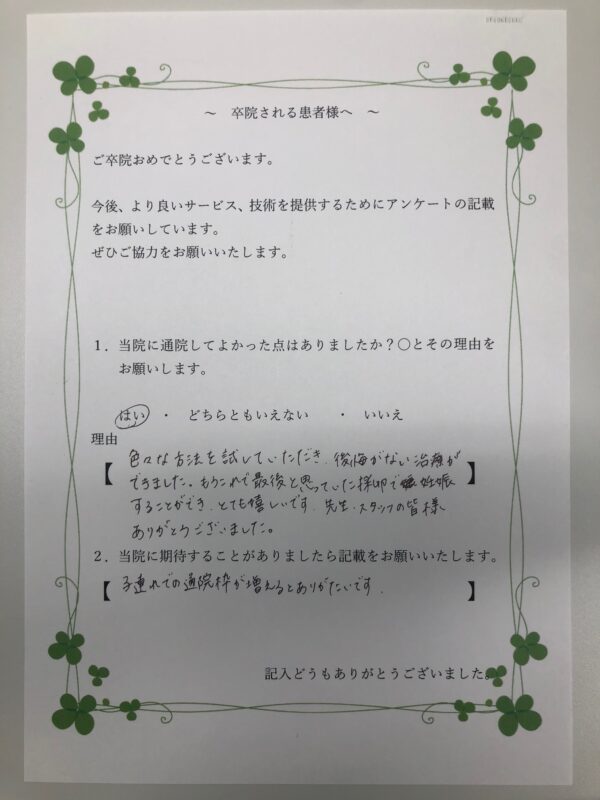 ～ 卒院される患者様へ ～
ご卒院おめでとうございます。
今後、より良いサービス、技術を提供するためにアンケートの記載
をお願いしています。
ぜひご協力をお願いいたします。
１．当院に通院してよかった点はありましたか？〇とその理由を
お願いします。
はい ・ どちらともいえない ・ いいえ
理由
【 色々な方法を試していただき、後悔がない治療が
できました。もうこれで最後と思っていた採卵で妊娠 】
することができ、とても嬉しいです。先生・スタッフの皆様
ありがとうございました。
２．当院に期待することがありましたら記載をお願いいたします。
【 子連れでの通院枠が増えるとありがたいです。 】
記入どうもありがとうございました。